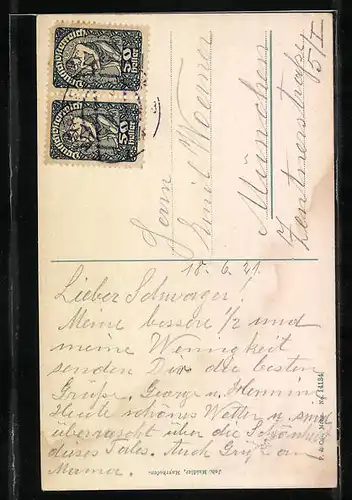 Deutschösterreich
50 Heller
Deutschösterreich
50 Heller
Herrn
Emil Woerner
München
Zentnerstraße
5/I
18.6.21.
Lieber Schwager!
Meine bessere 1/2 und
meine Wenigkeit
senden Dir die besten
Grüße, George u. Hermin
Heute schönes Wetter u. sind
überrascht über die Schönheit
dieses Tales. Auch Gruß an
14184